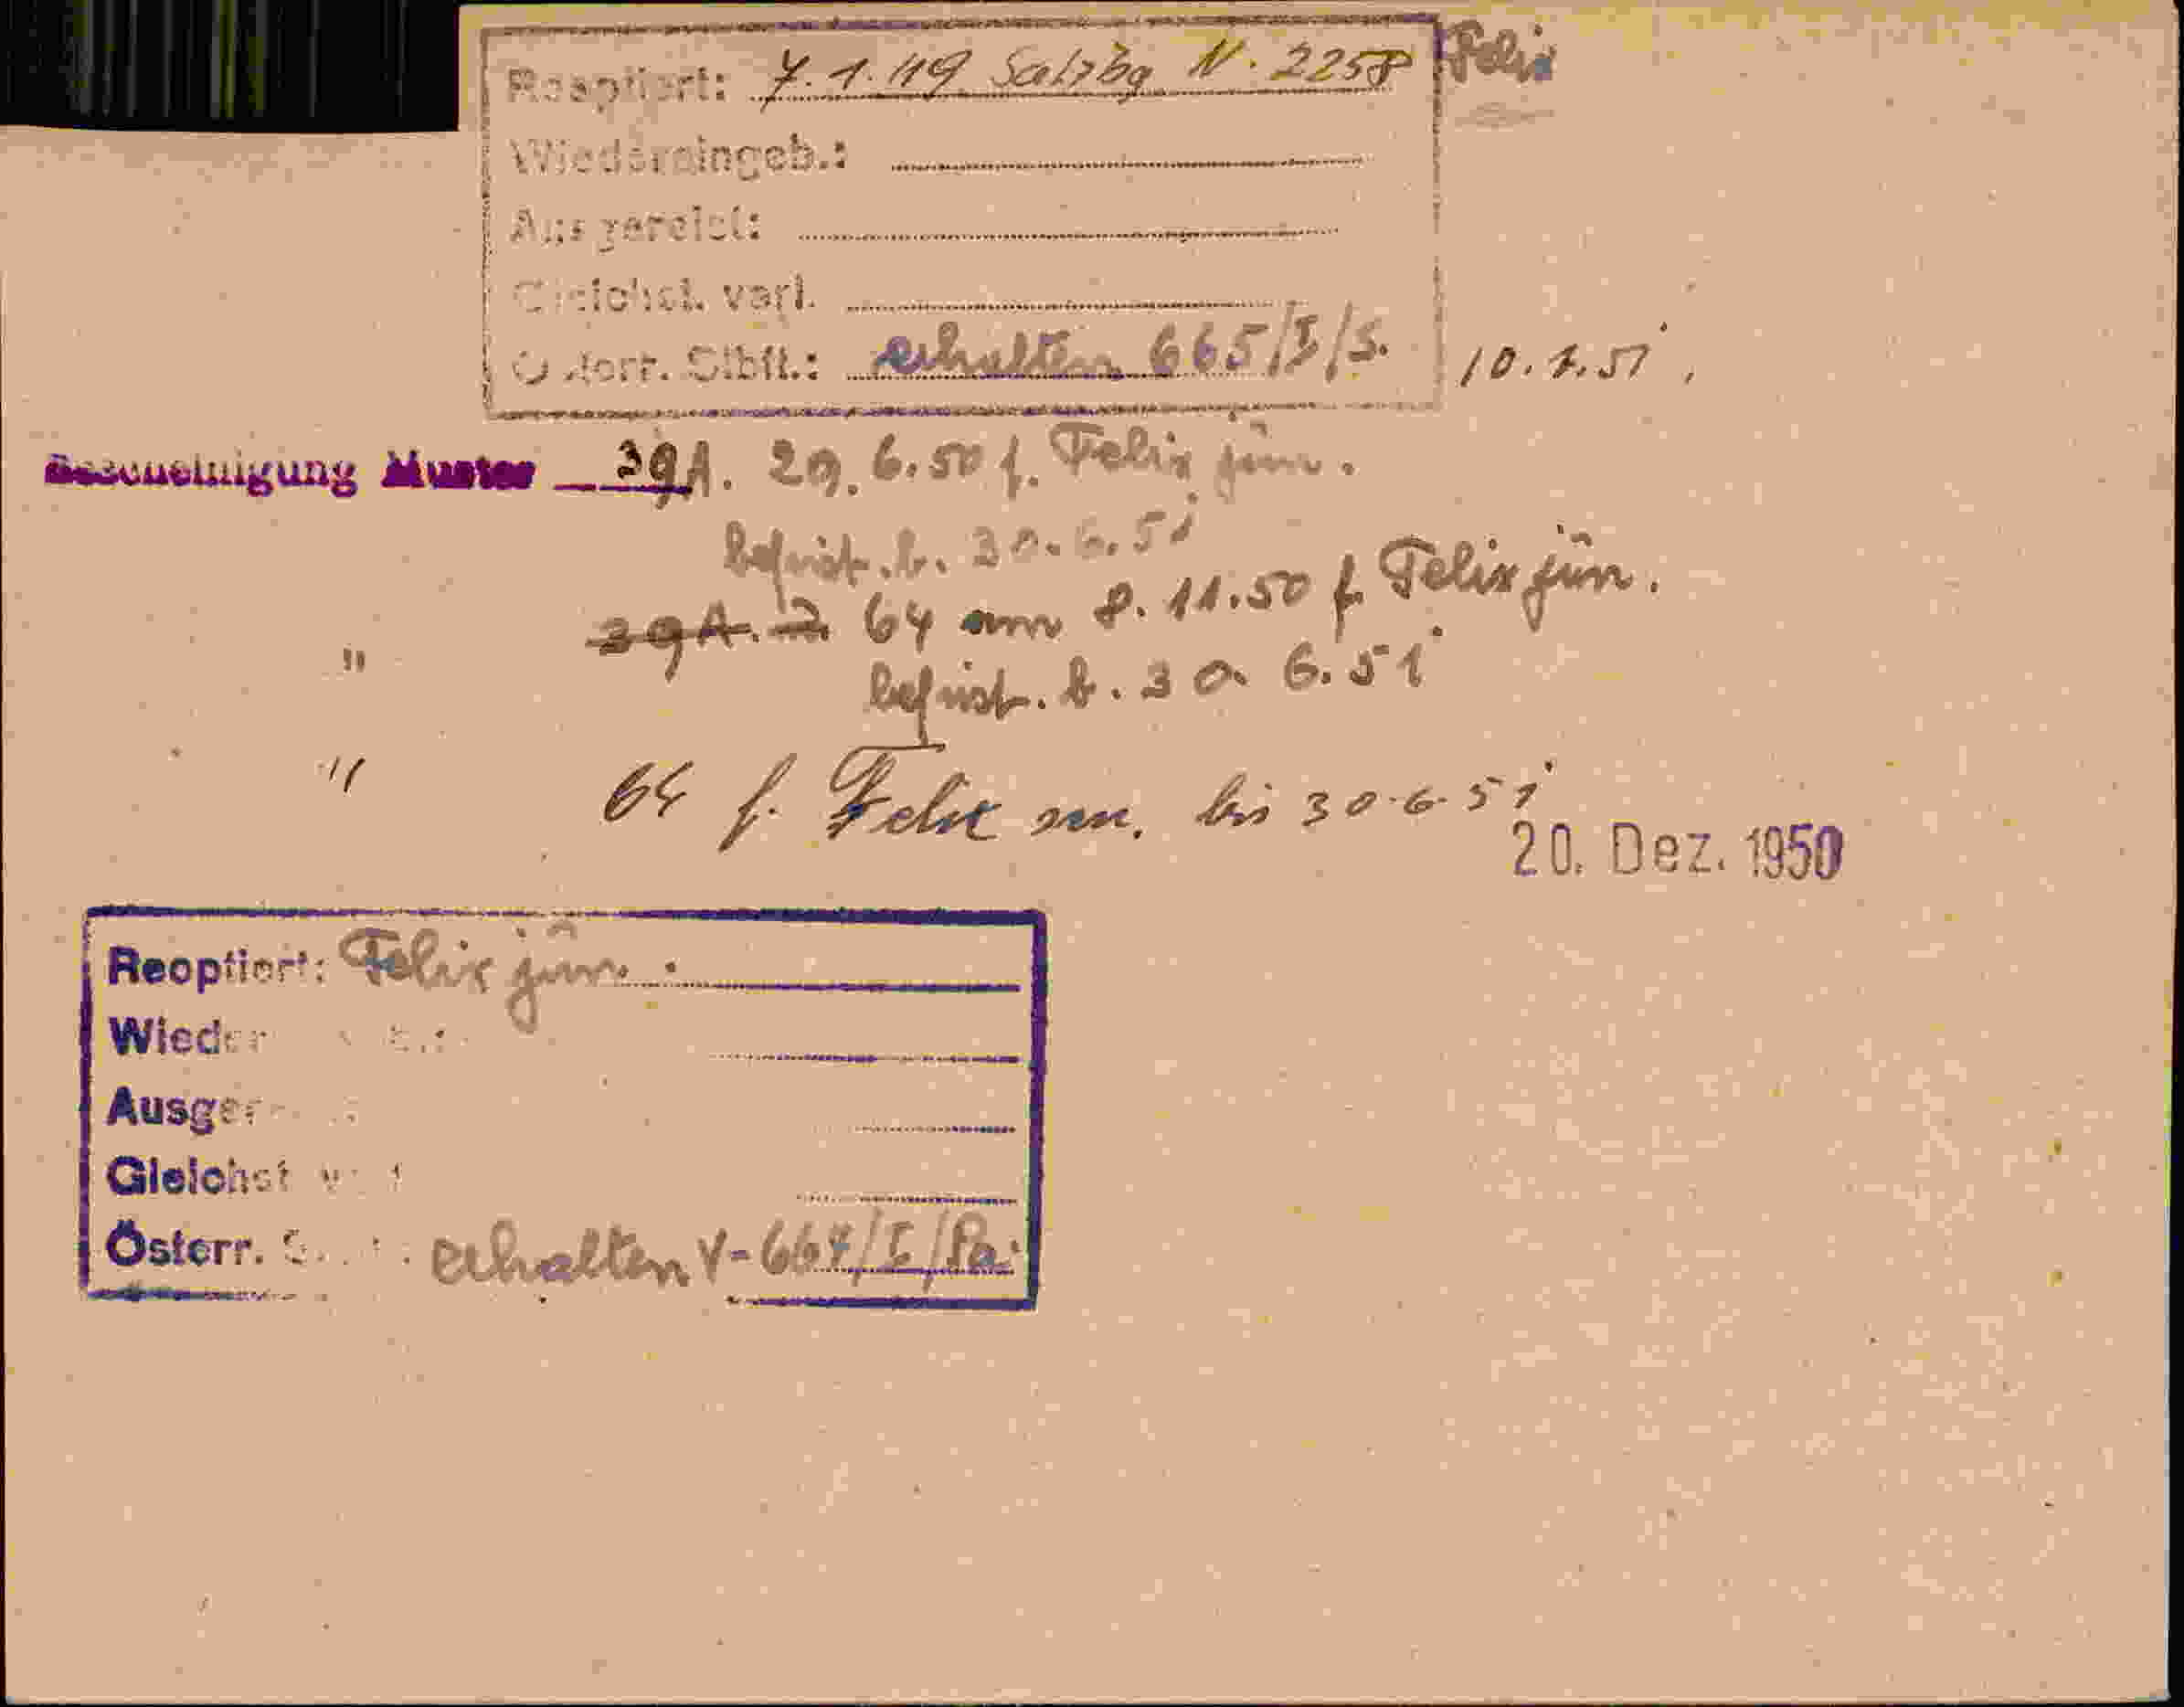 Reoptiert: 7.1.49 Salzbg N. 2258 Felix
Wiedereingeb.:
Ausgereist:
Gleichst. verl.
Österr. Stbft.: erhalten 665/I/S. 10.1.51.
Bescheinigung Muster 39A. 29.6.50 f. Felix jun.
befrist. b. 30.6.51
39A. 2. 64 am 8.11.50 f. Felix jun.
"
befrist. b. 30. 6.51
" 64 f. Felix sen. bis 30.6.51
20. Dez. 1950
Reoptiert: Felix jun.
Wieder
Ausger
Gleichst
Österr. erhalten V-667/I/Pa.